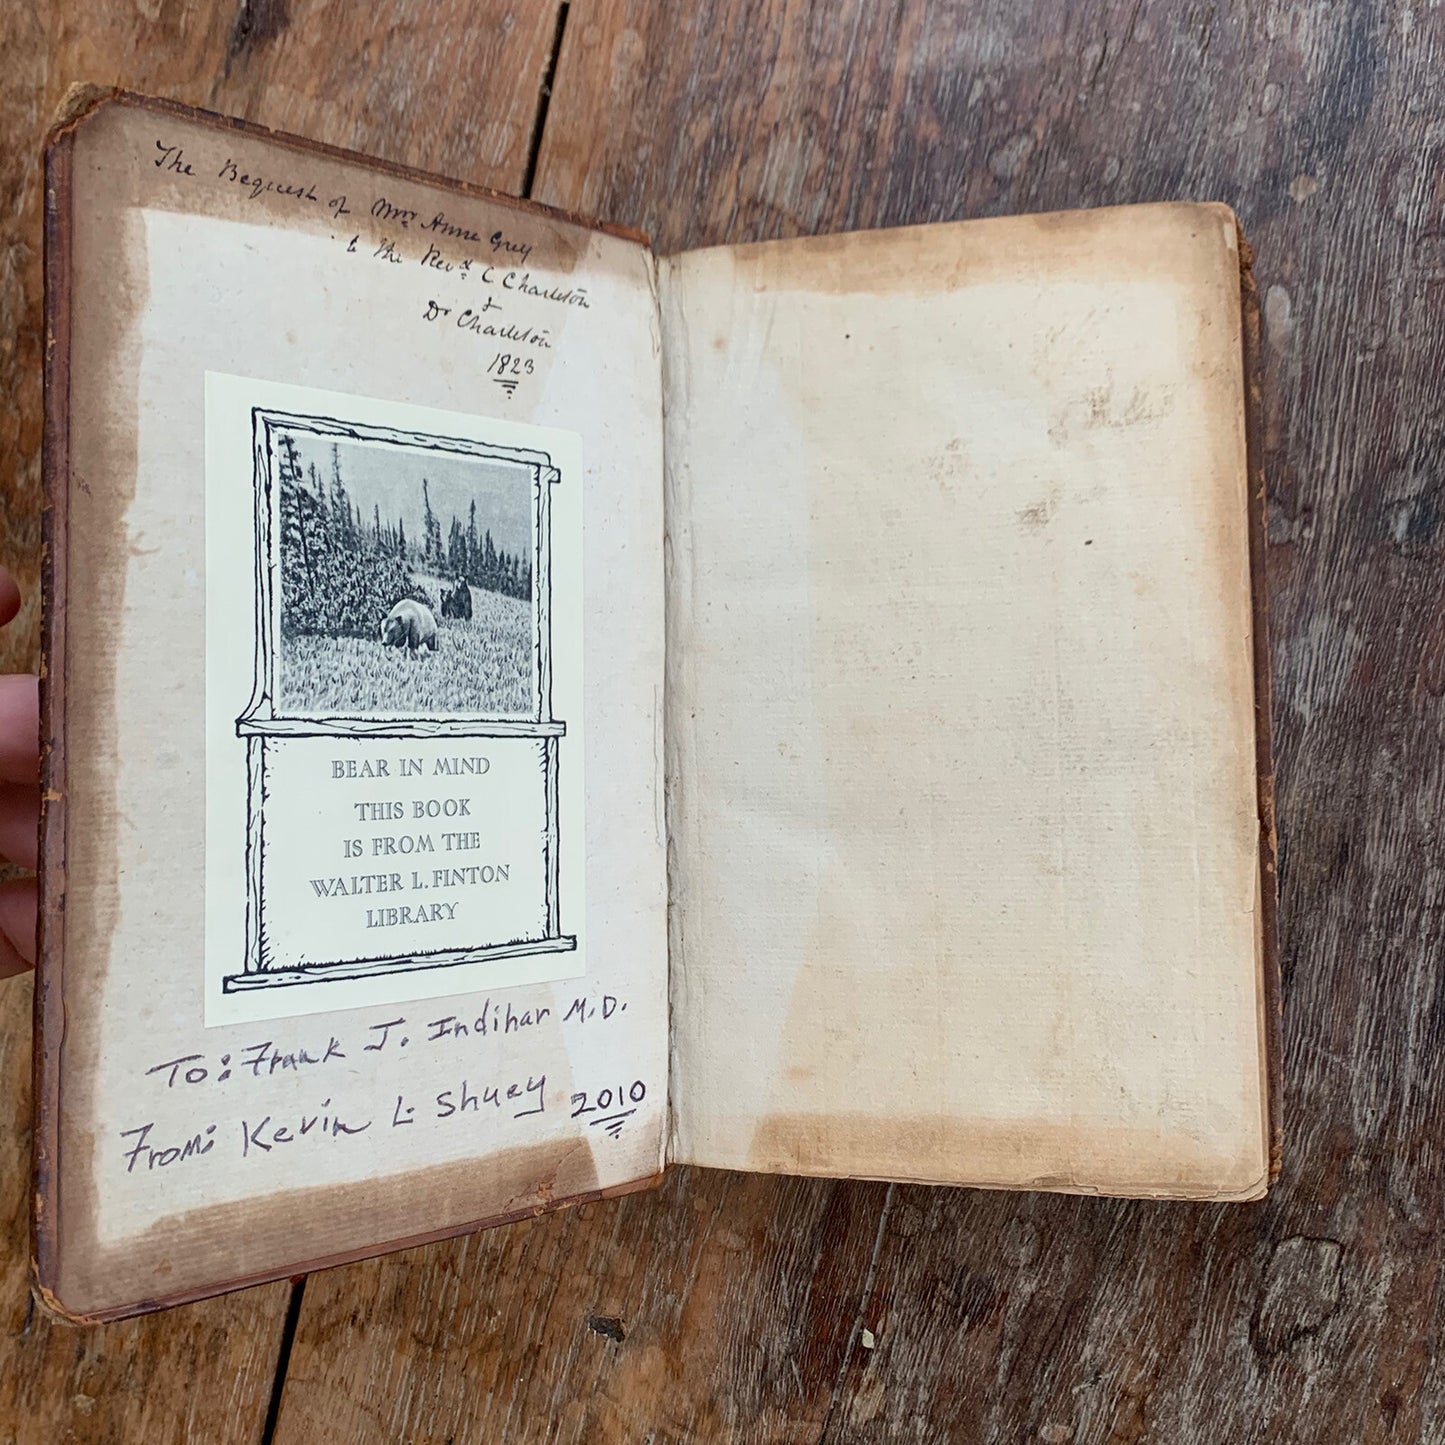 The Bequest of Mrs Anne Grey
to the Revd C Charleton
&
Dr Charleton
1823
BEAR IN MIND
THIS BOOK
IS FROM THE
WALTER L. FINTON
LIBRARY
To: Frank J. Indihar M.D.
From: Kevin L. Shuey 2010